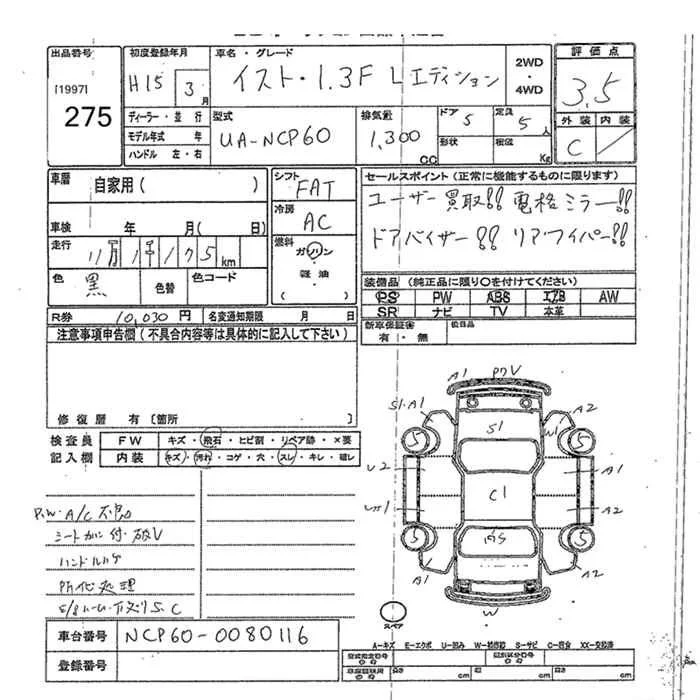 出品番号 初度登録年月 車名・グレード 2WD・4WD 評価点
[1997] H15 3月 イスト・1.3F Lエディション 3.5
275
ディーラー・並行 型式 排気量 ドア 定員 外装 内装
モデル年式 年 UA-NCP60 1,300CC 5 5人 C
ハンドル 左・右 形状 積載 Kg
車暦 自家用( ) シフト FAT セールスポイント(正常に機能するものに限ります)
ユーザー買取!! 電格ミラー!!
車検 年 月( 日) 冷房 AC
ドアバイザー!! リアワイパー!!
走行 11万1千175km 燃料 ガソリン・軽油・( )
色 黒 色替 色コード
装備品(純正品に限り〇を付けてください)
PS PW ABS エアB AW
SR ナビ TV 本革
R券 10,030円 名変通知期限 月 日
新車保証書 有・無 後日品
注意事項申告欄(不具合内容等は具体的に記入して下さい)
修復暦 有[箇所 ]
検査員 FW キズ・飛石・ヒビ割・リペア跡・×要
記入欄 内装 キズ・汚れ・コゲ・穴・スレ・キレ・破レ
P.W・A/C
シート
ハンドル
処理
A1 V
S1・A1 A2
S1 W1
5 5
U2 A1
C1
A2
5 5
A1 A2
W
スペア
車台番号 NCP60-0080116
登録番号
A-キズ E-エクボ U-凹み W-補修跡 S-サビ C-腐食 XX-交換済
型式指定番号 類別区分番号
長さ cm 巾 cm 高さ cm